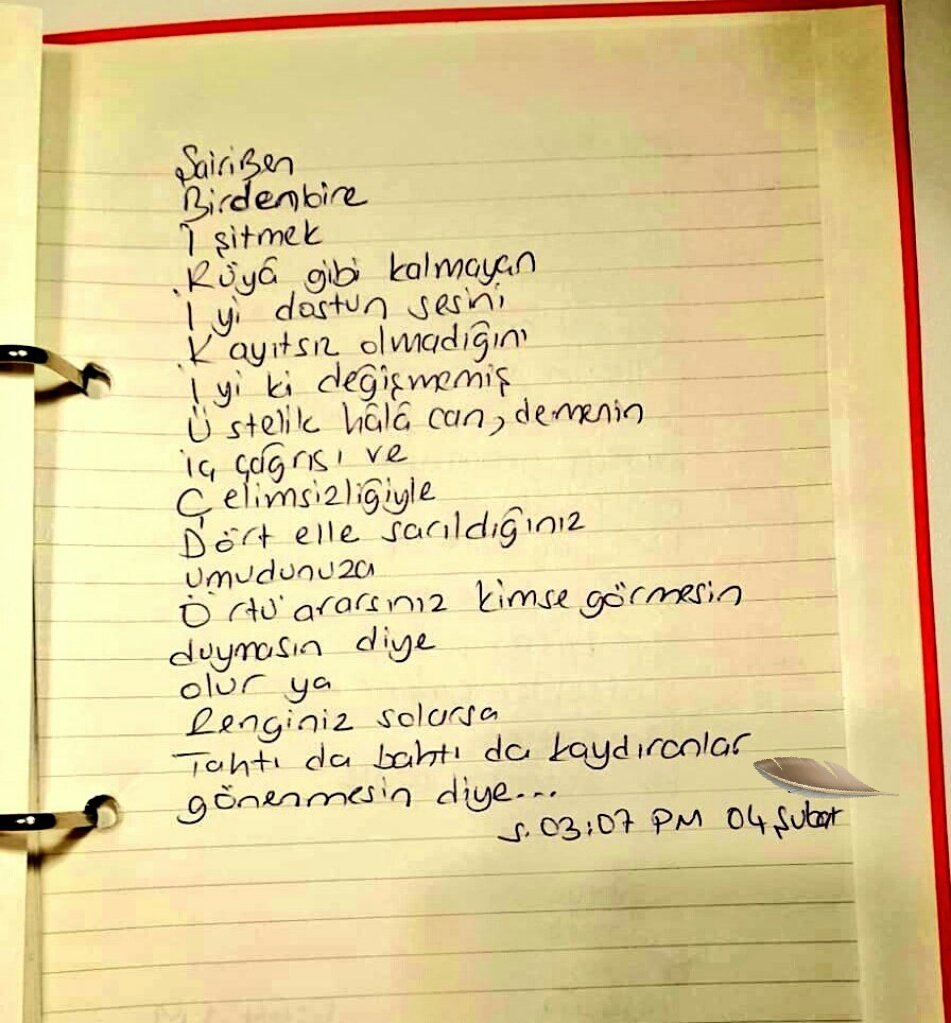 ŞairiBen
Birdenbire
İşitmek
Rüyâ gibi kalmayan
İyi dostun sesini
Kayıtsız olmadığını
İyi ki değişmemiş
Üstelik hâlâ can, demenin
iç çağrısı ve
Çelimsizliğiyle
Dört elle sarıldığınız
umudunuza
Örtü ararsınız kimse görmesin
duymasın diye
olur ya
Renginiz solarsa
Tahtı da bahtı da kaydıranlar
gönenmesin diye...
s. 03:07 PM 04 Şubat